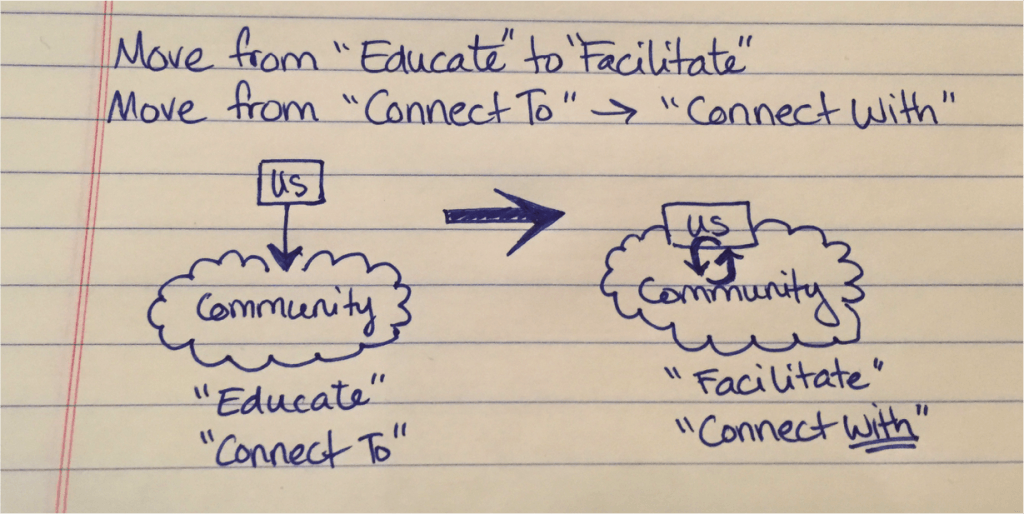 Move from "Educate" to "Facilitate"
Move from "Connect To" → "Connect With"
us
Community
"Educate"
"Connect To"
us
Community
"Facilitate"
"Connect With"